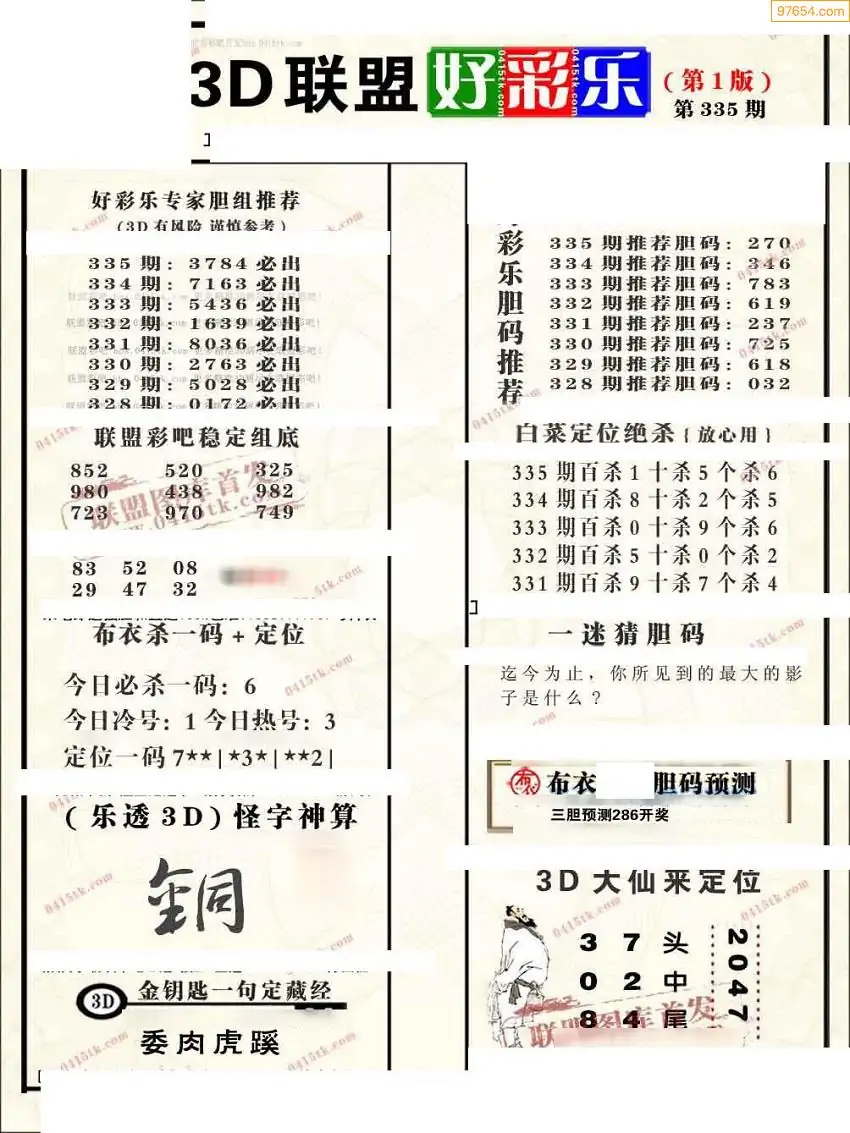 97654.com
3D联盟好彩乐(第1版)
第335期
好彩乐专家胆组推荐
(3D有风险 谨慎参考)
335期:3784必出
334期:7163必出
333期:5436必出
332期:1639必出
331期:8036必出
330期:2763必出
329期:5028必出
328期:0172必出
联盟彩吧稳定组底
852 520 325
980 438 982
723 970 749
83 52 08
29 47 32
布衣杀一码+定位
今日必杀一码:6
今日冷号:1今日热号:3
定位一码7**|*3*|**2|
(乐透3D)怪字神算
銅
3D 金钥匙一句定藏经
委肉虎蹊
彩乐胆码推荐
335期推荐胆码:270
334期推荐胆码:346
333期推荐胆码:783
332期推荐胆码:619
331期推荐胆码:237
330期推荐胆码:725
329期推荐胆码:618
328期推荐胆码:032
白菜定位绝杀{放心用}
335期百杀1十杀5个杀6
334期百杀8十杀2个杀5
333期百杀0十杀9个杀6
332期百杀5十杀0个杀2
331期百杀9十杀7个杀4
一迷猜胆码
迄今为止,你所见到的最大的影
子是什么?
布衣 胆码预测
三胆预测286开奖
3D大仙来定位
3 7头
0 2中
8 4尾
2047
联盟图库首发
0415tk.com